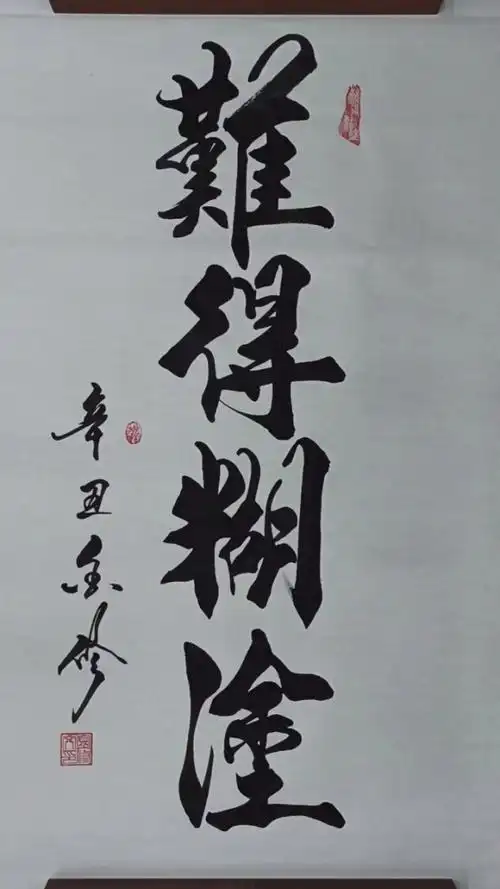 難得糊塗
辛丑